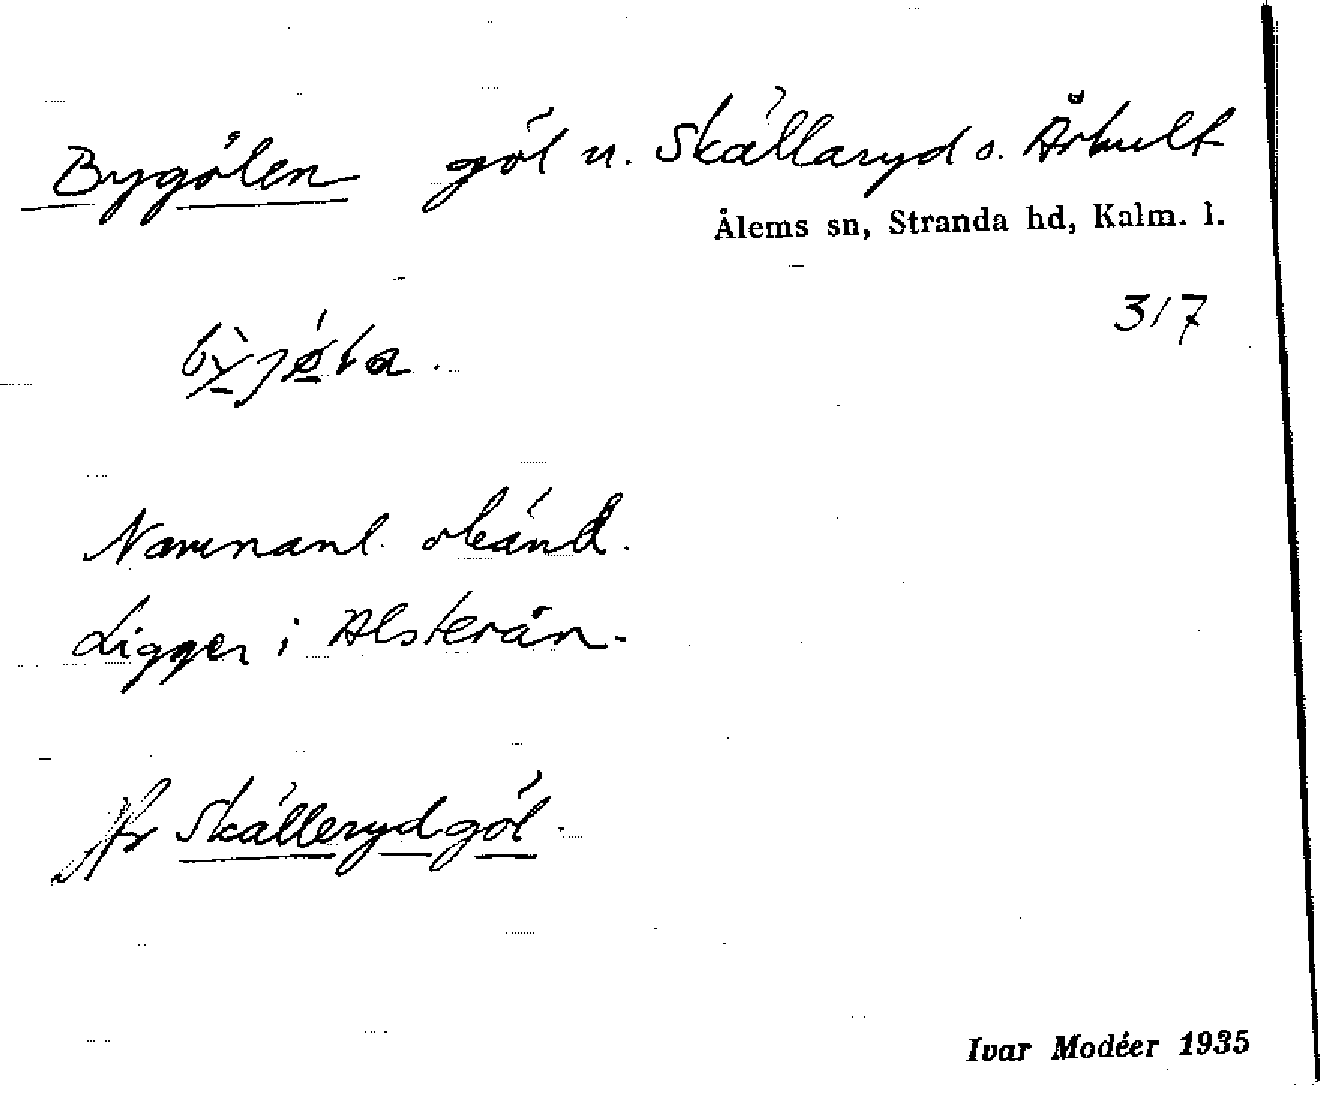 Bygölen göl u. Skällaryd o. Århult
Ålems sn, Stranda hd, Kalm. l.
317
Namnanl. okänd.
Ligger i Alsterån.
Jfr Skällerydgöl.
Ivar Modéer 1935